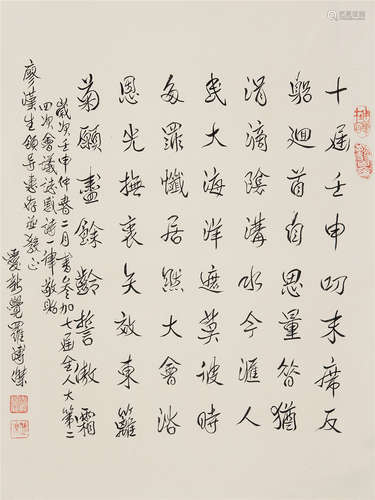 十届壬申叨末席反
躬迴首自思量昔猶
涓滴陰溝水今滙人
民大海洋遮莫彼時
多罪懺居然大會浴
恩光撫衷矢效東籬
菊願盡餘齡誓傲霜
歲次壬申仲春二月書參加七届全人大第二
四次會議誌感詩一律敬貽
廖漢生領導惠存並教正
愛新覺羅溥傑